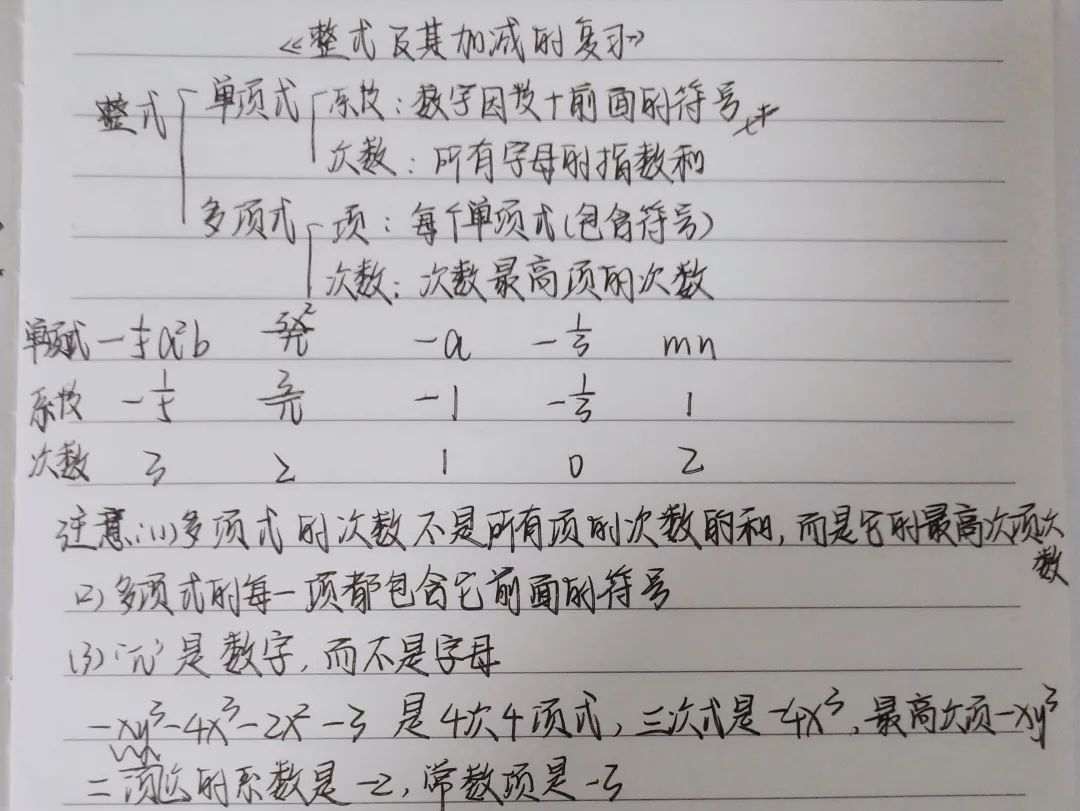 《整式及其加减的复习》
整式 单项式 系数：数字因数+前面的符号
次数：所有字母的指数和
多项式 项：每个单项式(包含符号)
次数：次数最高项的次数
单项式 -⅕a²b 3x²/π -a -⅓ mn
系数 -⅕ 3/π -1 -⅓ 1
次数 3 2 1 0 2
注意:(1)多项式的次数不是所有项的次数的和,而是它的最高次项次数
(2)多项式的每一项都包含它前面的符号
(3)"π"是数字,而不是字母
-xy³-4x³-2x²-3是4次4项式,三次式是-4x³,最高次项-xy³
二次的系数是-2,常数项是-3